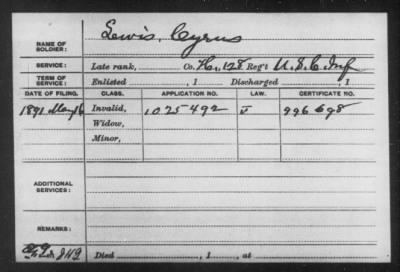 NAME OF SOLDIER: Lewis, Cyrus
SERVICE: Late rank, Co. H, 128 Reg't U.S.C. Inf
TERM OF SERVICE: Enlisted , 1 Discharged , 1
DATE OF FILING. CLASS. APPLICATION NO. LAW. CERTIFICATE NO.
1891 May 16 Invalid, 1025492 996698
Widow,
Minor,
ADDITIONAL SERVICES:
REMARKS:
Died , 1 , at